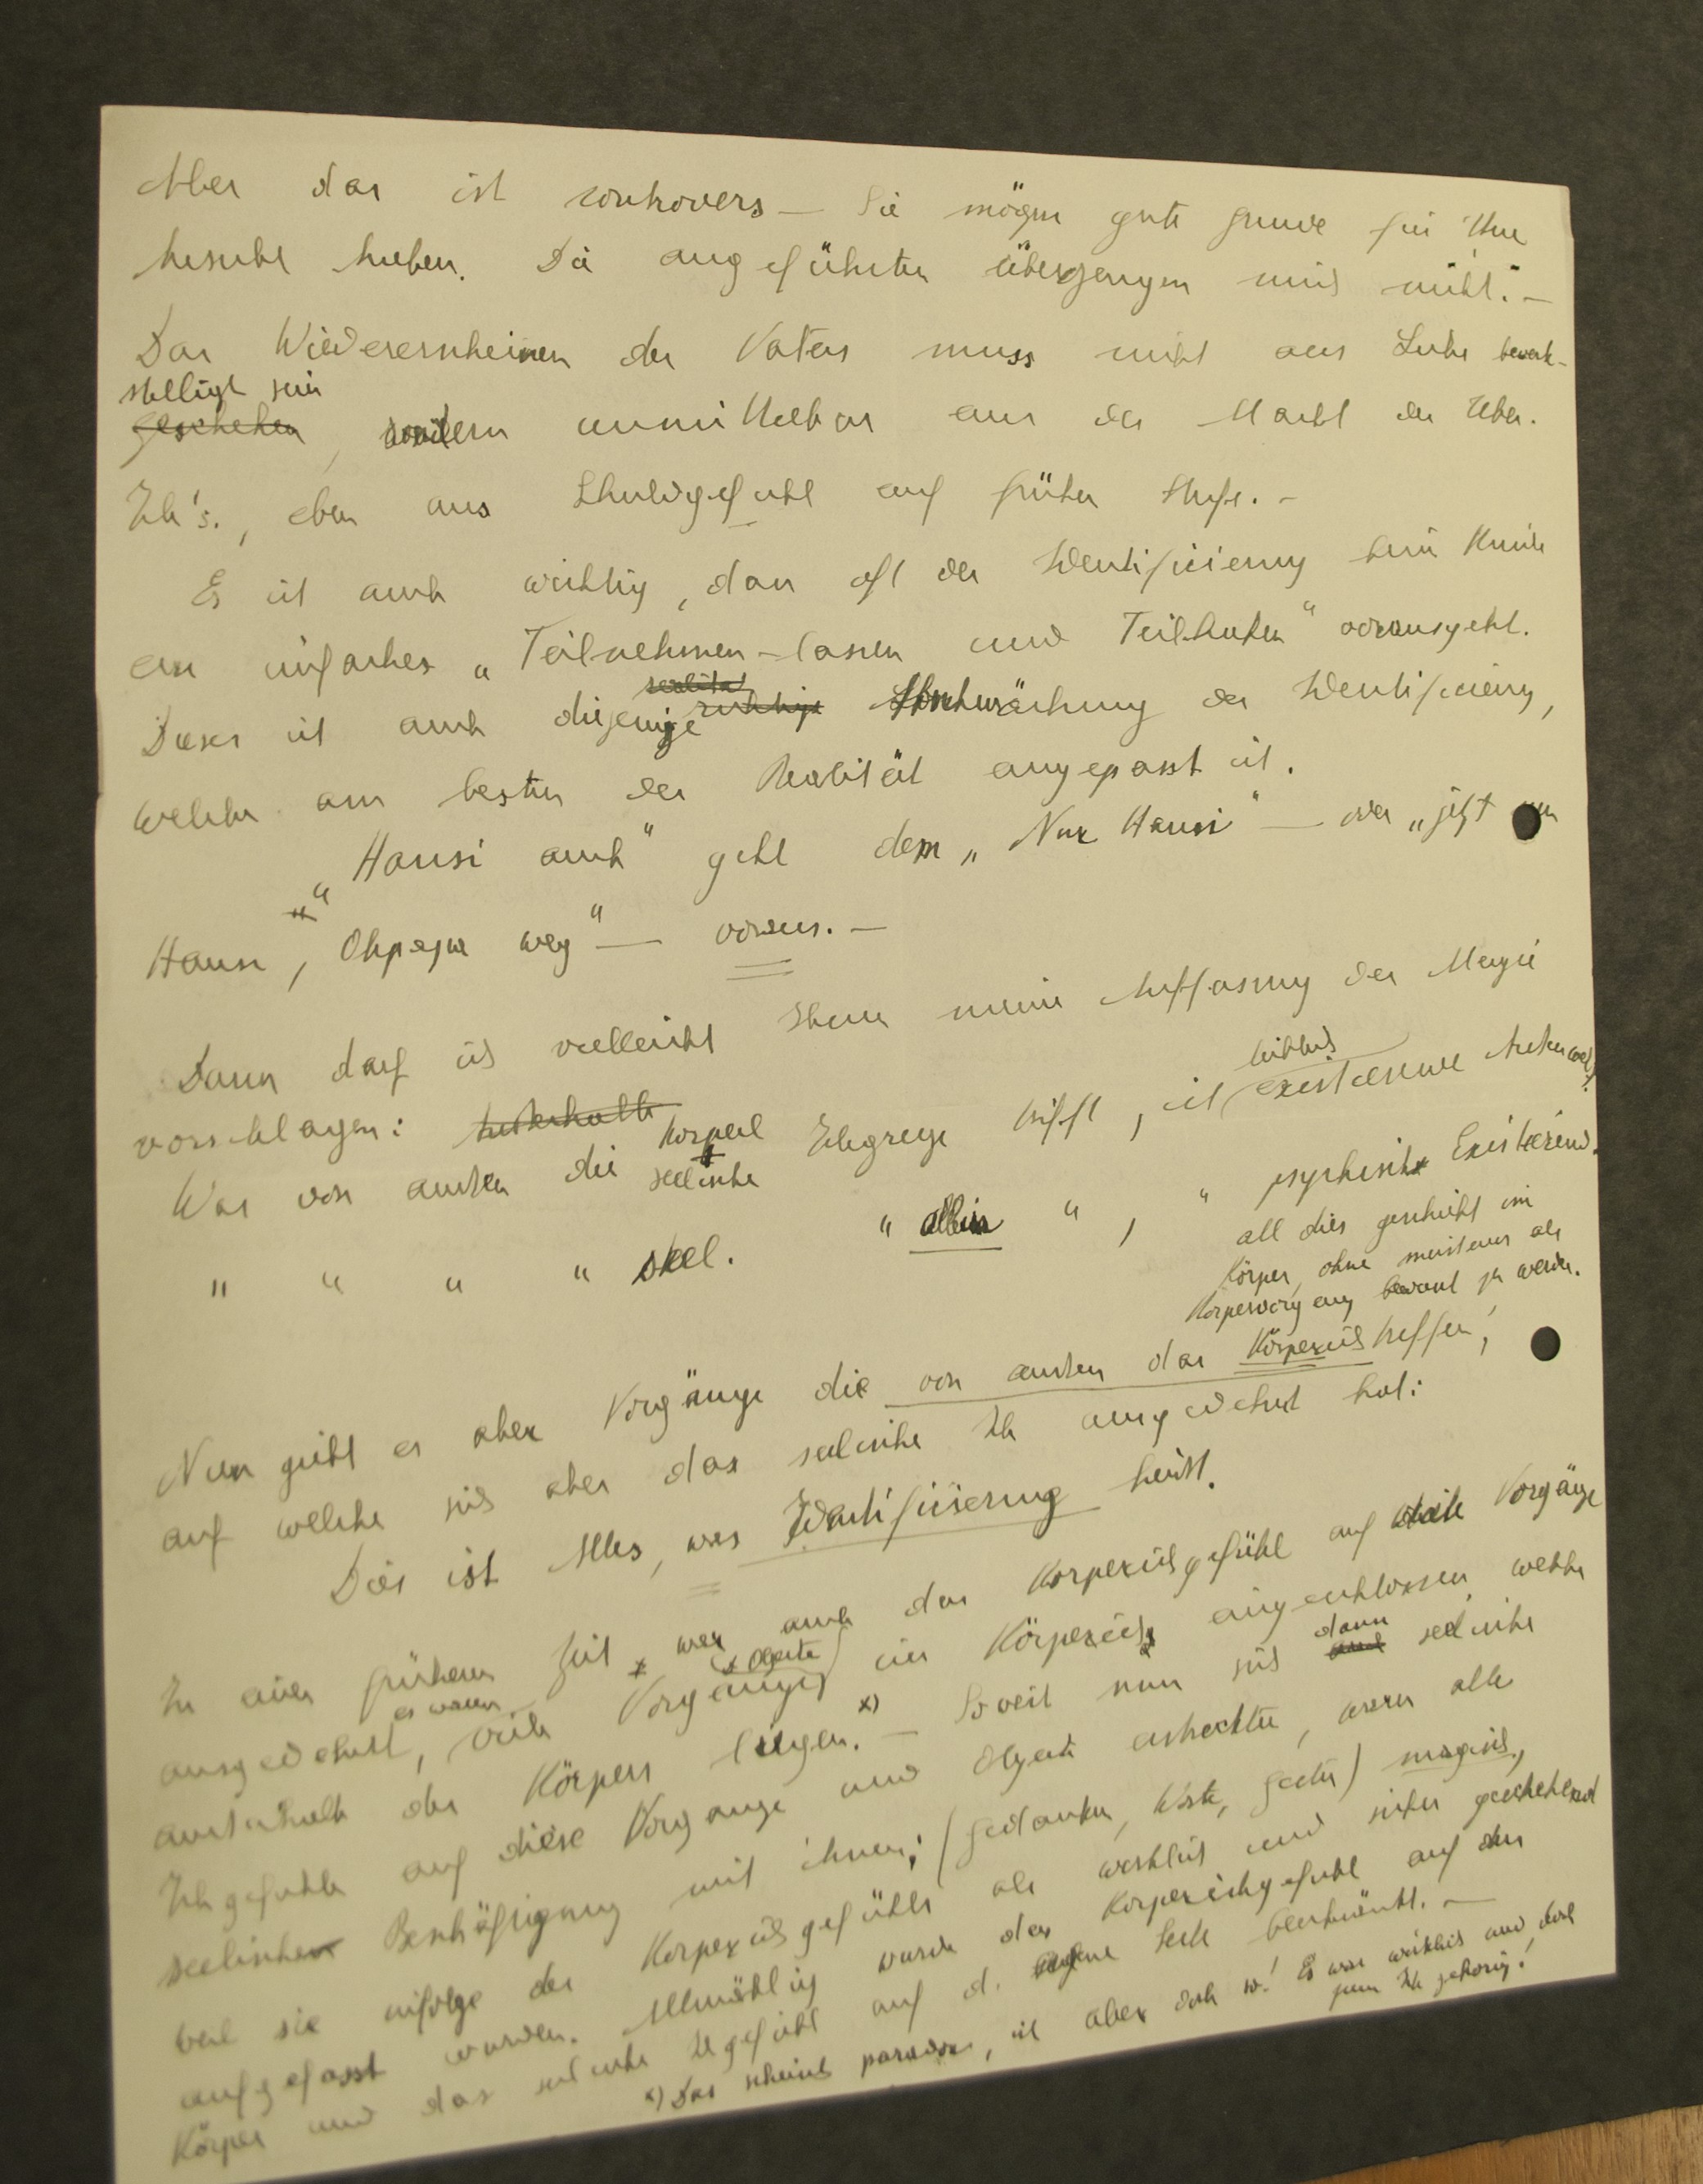 Aber das ist controvers — Sie mögen gute Gründe für Ihre
haben. Die angeführten überzeugen mich nicht. —
Das Wiedererscheinen des Vaters muss nicht aus Liebe bewerk-
stelligt sein
geschehen, sondern unmittelbar aus der Macht des Über-
Ich's., eben aus Schuldgefühl auf früher Stufe. —
Es ist auch wichtig, dass oft der Identificierung beim Kinde
ein einfaches „Teilnehmen-lassen und Teilhaben" vorausgeht.
Dieses ist auch diejenige Abschwächung der Identificierung,
welche am besten der Realität angepasst ist.
„Hansi auch" geht dem „Nur Hansi" — oder „jetzt nur
Hansi, Ohpapa weg" — voraus. —
Dann darf ich vielleicht Ihnen meine Auffassung der Magie
vorschlagen:
Was von aussen die körperl seelische Ichgrenze trifft, ist existierende Aussenwelt.
" " " " seel. " allein " , " psychisch Existierend.
all dies geschieht im
Körper, ohne meistens als
Körpervorgang bewusst zu werden.
Nun giebt es aber Vorgänge die von aussen das Körperich treffen,
auf welche sich aber das seelische Ich ausgedehnt hat:
Dies ist Alles, was Identificierung heisst.
In einer früheren Zeit war auch das Körperichgefühl auf viele Vorgänge
ausgedehnt, es waren viele Vorgänge (+ Objecte) im Körperich eingeschlossen, welche
ausserhalb des Körpers liegen. x) — Soweit nun sich dann seelische
Ichgefühle auf diese Vorgänge und Objecte erstreckte, waren alle
seelischen Beschäftigung mit ihnen; (Gedanken, Worte, Geste) magisch,
weil sie infolge des Körperichgefühls als wirklich und sicher geschehend
aufgefasst wurden. Allmählig wurde das Körperichgefühl auf den
Körper und das seelische Ichgefühl auf d. eigene Seele beschränkt. —
x) Das scheint paradox, ist aber doch so! Es war wirklich und doch
zum Ich gehörig!